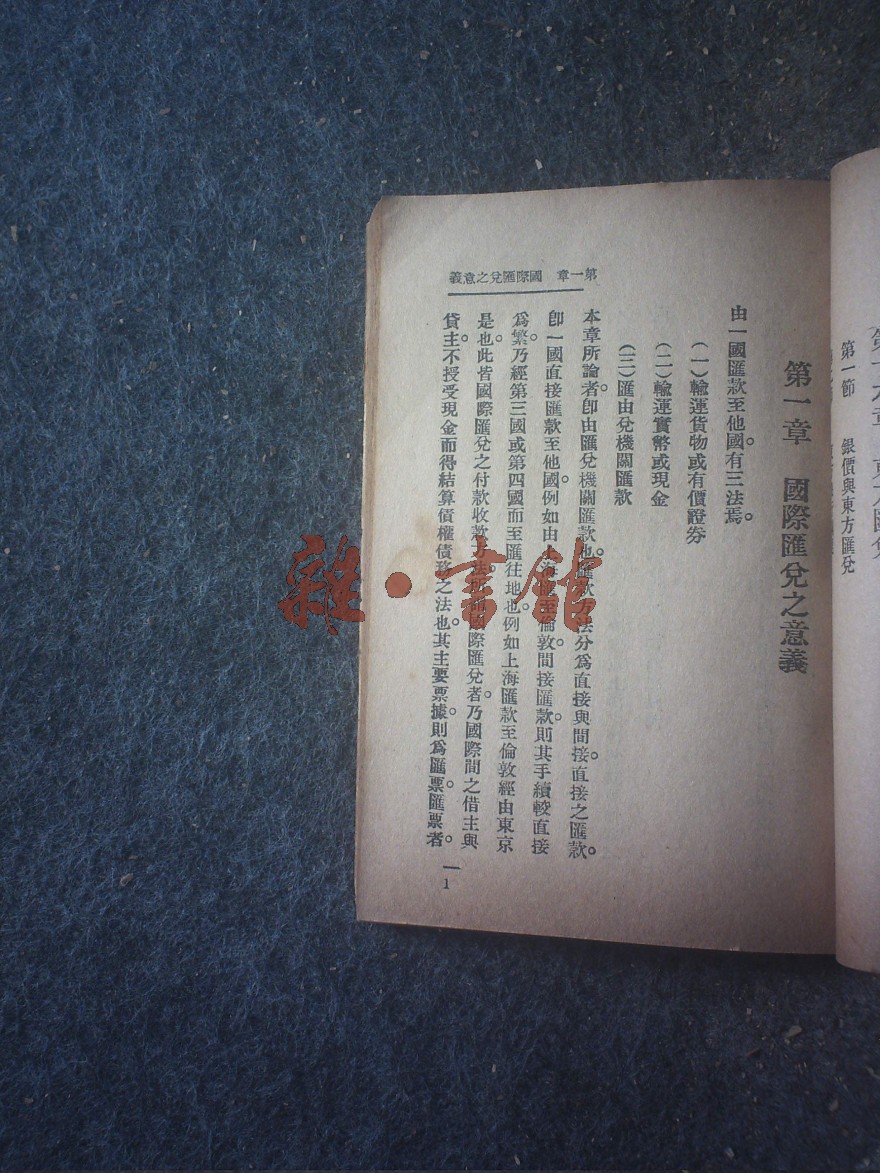 第一節 銀價與東方匯兌
第一章 國際匯兌之意義
由一國匯款至他國。有三法焉。
(一)輸運貨物或有價證券
(二)輸運實幣或現金
(三)匯由兌機關匯款
本章所論者。卽由匯兌機關匯款也。匯款方法分爲直接與間接。直接之匯款。
卽一國直接匯款至他國。例如由上海 至倫敦。間接匯款。則其手續較直接
爲繁。乃經第三國或第四國而至匯往地也。例如上海匯款至倫敦經由東京
是也。此皆國際匯兌之付款收款 國際匯兌者。乃國際間之借主與
貸主不授受現金而得結算債權債務之法也。其主要票據。則爲匯票。匯票者。
第一章 國際匯兌之意義
1
雜·書館